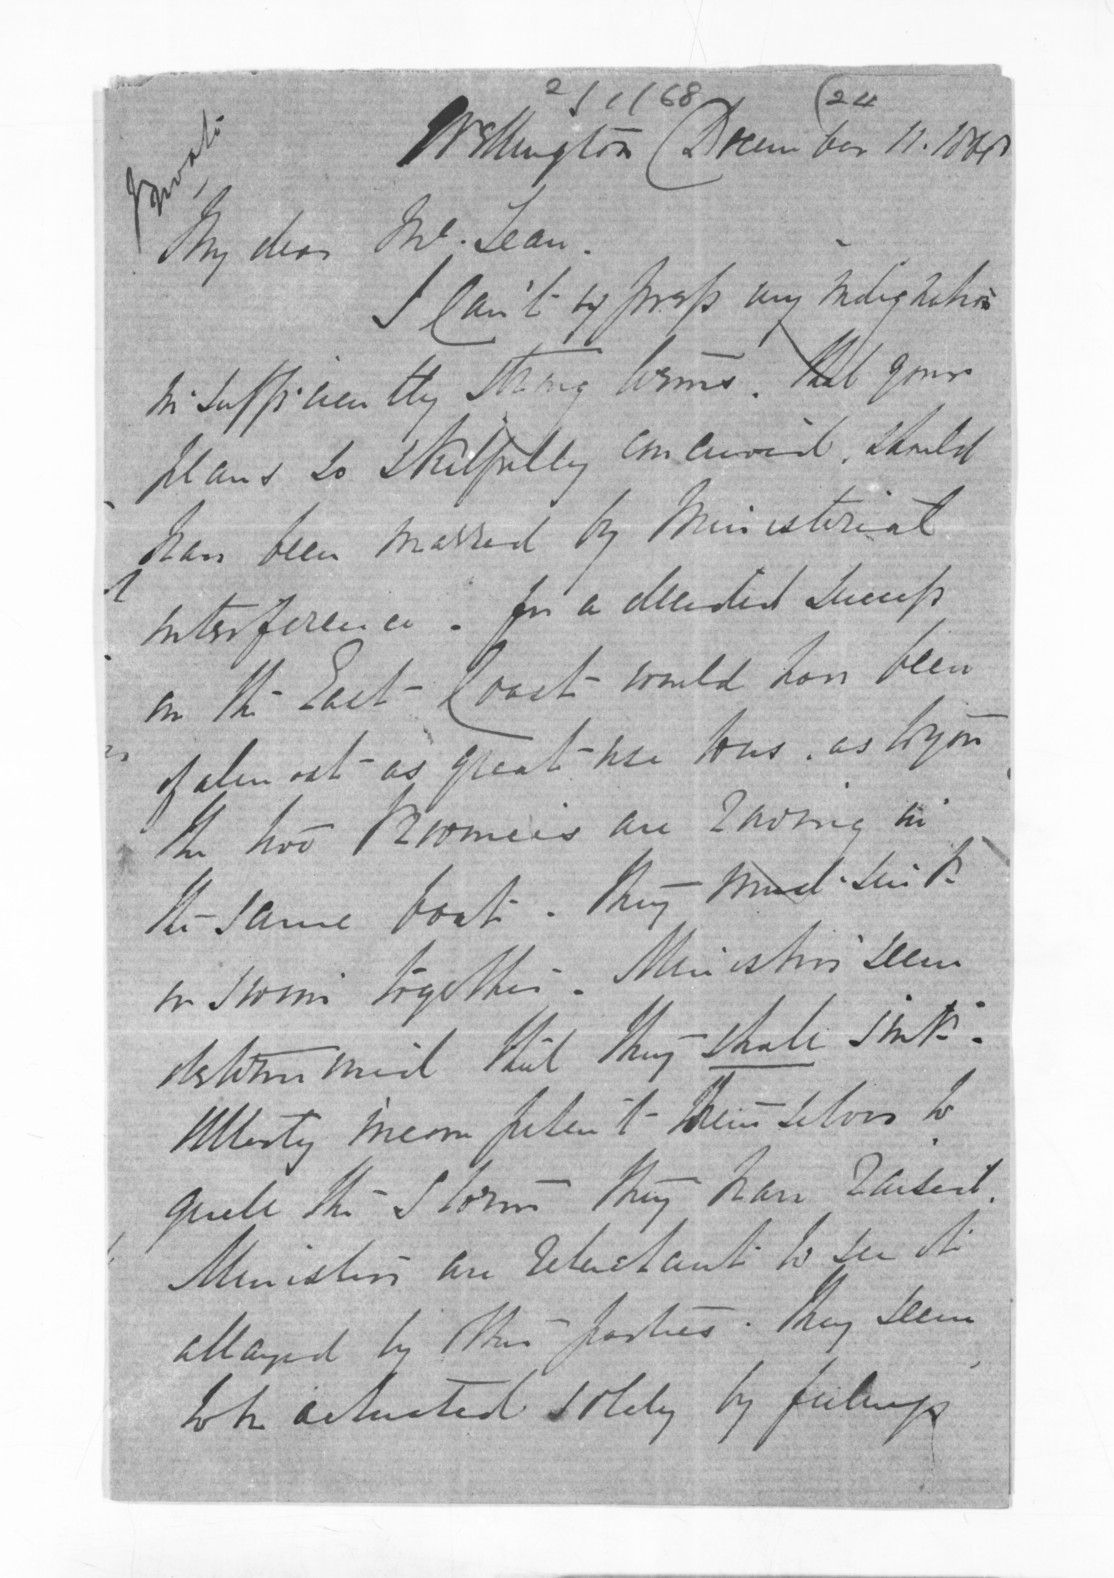 2/1/68 (24
Private
Wellington December 11. 1868
My dear McLean.
I can't express my indignation
in sufficiently strong terms. that your
plans so skilfully conceived, should
have been marred by Ministerial
interference. for a decided success
on the East Coast would have been
of almost as great use to us. as to you
the two Provinces are rowing in
the same boat. they must sink
or swim together. Ministers seem
determined that they shall sink.
Utterly incompetent themselves to
quell the storm they have raised.
Ministers are reluctant to see it
allayed by other parties. they seem
to be actuated solely by feelings